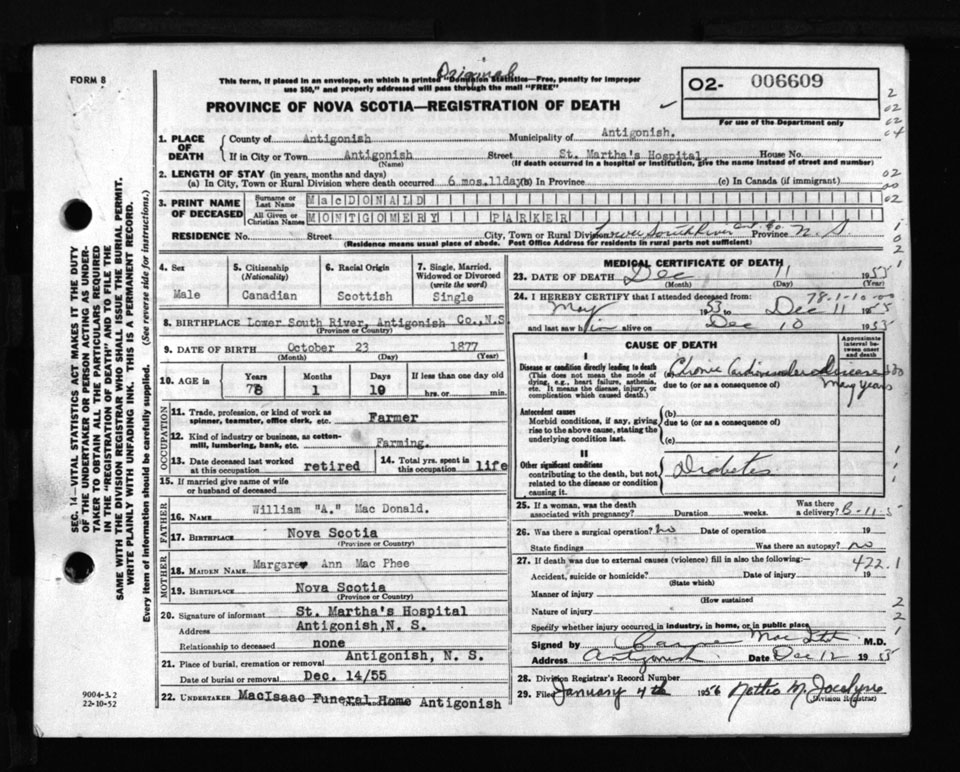 FORM 8
Original
This form, if placed in an envelope, on which is printed "Dominion Statistics—Free, penalty for improper
use $50," and properly addressed will pass through the mail "FREE"
PROVINCE OF NOVA SCOTIA—REGISTRATION OF DEATH
02- 006609
For use of the Department only
1. PLACE OF DEATH
County of Antigonish Municipality of Antigonish.
If in City or Town Antigonish Street St. Martha's Hospital House No.
(Name) (If death occurred in a hospital or institution, give the name instead of street and number)
2. LENGTH OF STAY (in years, months and days)
(a) In City, Town or Rural Division where death occurred 6 mos.11days (b) In Province (c) In Canada (if immigrant)
3. PRINT NAME OF DECEASED
Surname or Last Name MacDONALD
All Given or Christian Names MONTGOMERY PARKER
RESIDENCE No. Street City, Town or Rural Division Lower South River Ant. Co. Province N.S
(Residence means usual place of abode. Post Office Address for residents in rural parts not sufficient)
4. Sex Male
5. Citizenship (Nationality) Canadian
6. Racial Origin Scottish
7. Single, Married, Widowed or Divorced (write the word) Single
8. BIRTHPLACE Lower South River, Antigonish Co.,N.S
(Province or Country)
9. DATE OF BIRTH October 23 1877
(Month) (Day) (Year)
10. AGE in Years 78 Months 1 Days 19 If less than one day old hrs. or min.
OCCUPATION
11. Trade, profession, or kind of work as spinner, teamster, office clerk, etc. Farmer
12. Kind of industry or business, as cotton-mill, lumbering, bank, etc. Farming.
13. Date deceased last worked at this occupation retired
14. Total yrs. spent in this occupation life
15. If married give name of wife or husband of deceased
FATHER
16. NAME William "A." Mac Donald.
17. BIRTHPLACE Nova Scotia
(Province or Country)
MOTHER
18. MAIDEN NAME Margaret Ann Mac Phee
19. BIRTHPLACE Nova Scotia
(Province or Country)
20. Signature of informant St. Martha's Hospital
Address Antigonish,N. S.
Relationship to deceased none
21. Place of burial, cremation or removal Antigonish, N. S.
Date of burial or removal Dec. 14/55
22. UNDERTAKER MacIsaac Funeral Home Antigonish
MEDICAL CERTIFICATE OF DEATH
23. DATE OF DEATH Dec 11 1955
(Month) (Day)
78-1-10-00
24. I HEREBY CERTIFY that I attended deceased from:
May 1953 to Dec 11 1955
and last saw him alive on Dec 10 1955
CAUSE OF DEATH
Approximate interval between onset and death
I
Disease or condition directly leading to death
(This does not mean the mode of dying, e.g., heart failure, asthenia, etc. It means the disease, injury, or complication which caused death.)
(a) Chronic Cardiovascular disease
due to (or as a consequence of) Many years
Antecedent causes
Morbid conditions, if any, giving rise to the above cause, stating the underlying condition last.
(b)
due to (or as a consequence of)
(c)
II
Other significant conditions
contributing to the death, but not related to the disease or condition causing it.
Diabetes
25. If a woman, was the death associated with pregnancy? Duration weeks. Was there a delivery?
26. Was there a surgical operation? no Date of operation 19
State findings Was there an autopsy? no
27. If death was due to external causes (violence) fill in also the following:— 422.1
Accident, suicide or homicide? Date of injury 19
(State which)
Manner of injury
(How sustained)
Nature of injury
Specify whether injury occurred in industry, in home, or in public place
Signed by M.D.
Address Antigonish Date Dec 12 1955
28. Division Registrar's Record Number
29. Filed January 4th 1956
(Division Registrar)
SEC. 14—VITAL STATISTICS ACT MAKES IT THE DUTY
OF THE UNDERTAKER OR PERSON ACTING AS UNDER-
TAKER TO OBTAIN ALL THE PARTICULARS REQUIRED
IN THE "REGISTRATION OF DEATH" AND TO FILE THE
SAME WITH THE DIVISION REGISTRAR WHO SHALL ISSUE THE BURIAL PERMIT.
WRITE PLAINLY WITH UNFADING INK. THIS IS A PERMANENT RECORD.
Every item of information should be carefully supplied. (See reverse side for instructions.)
9004-3.2
22-10-52